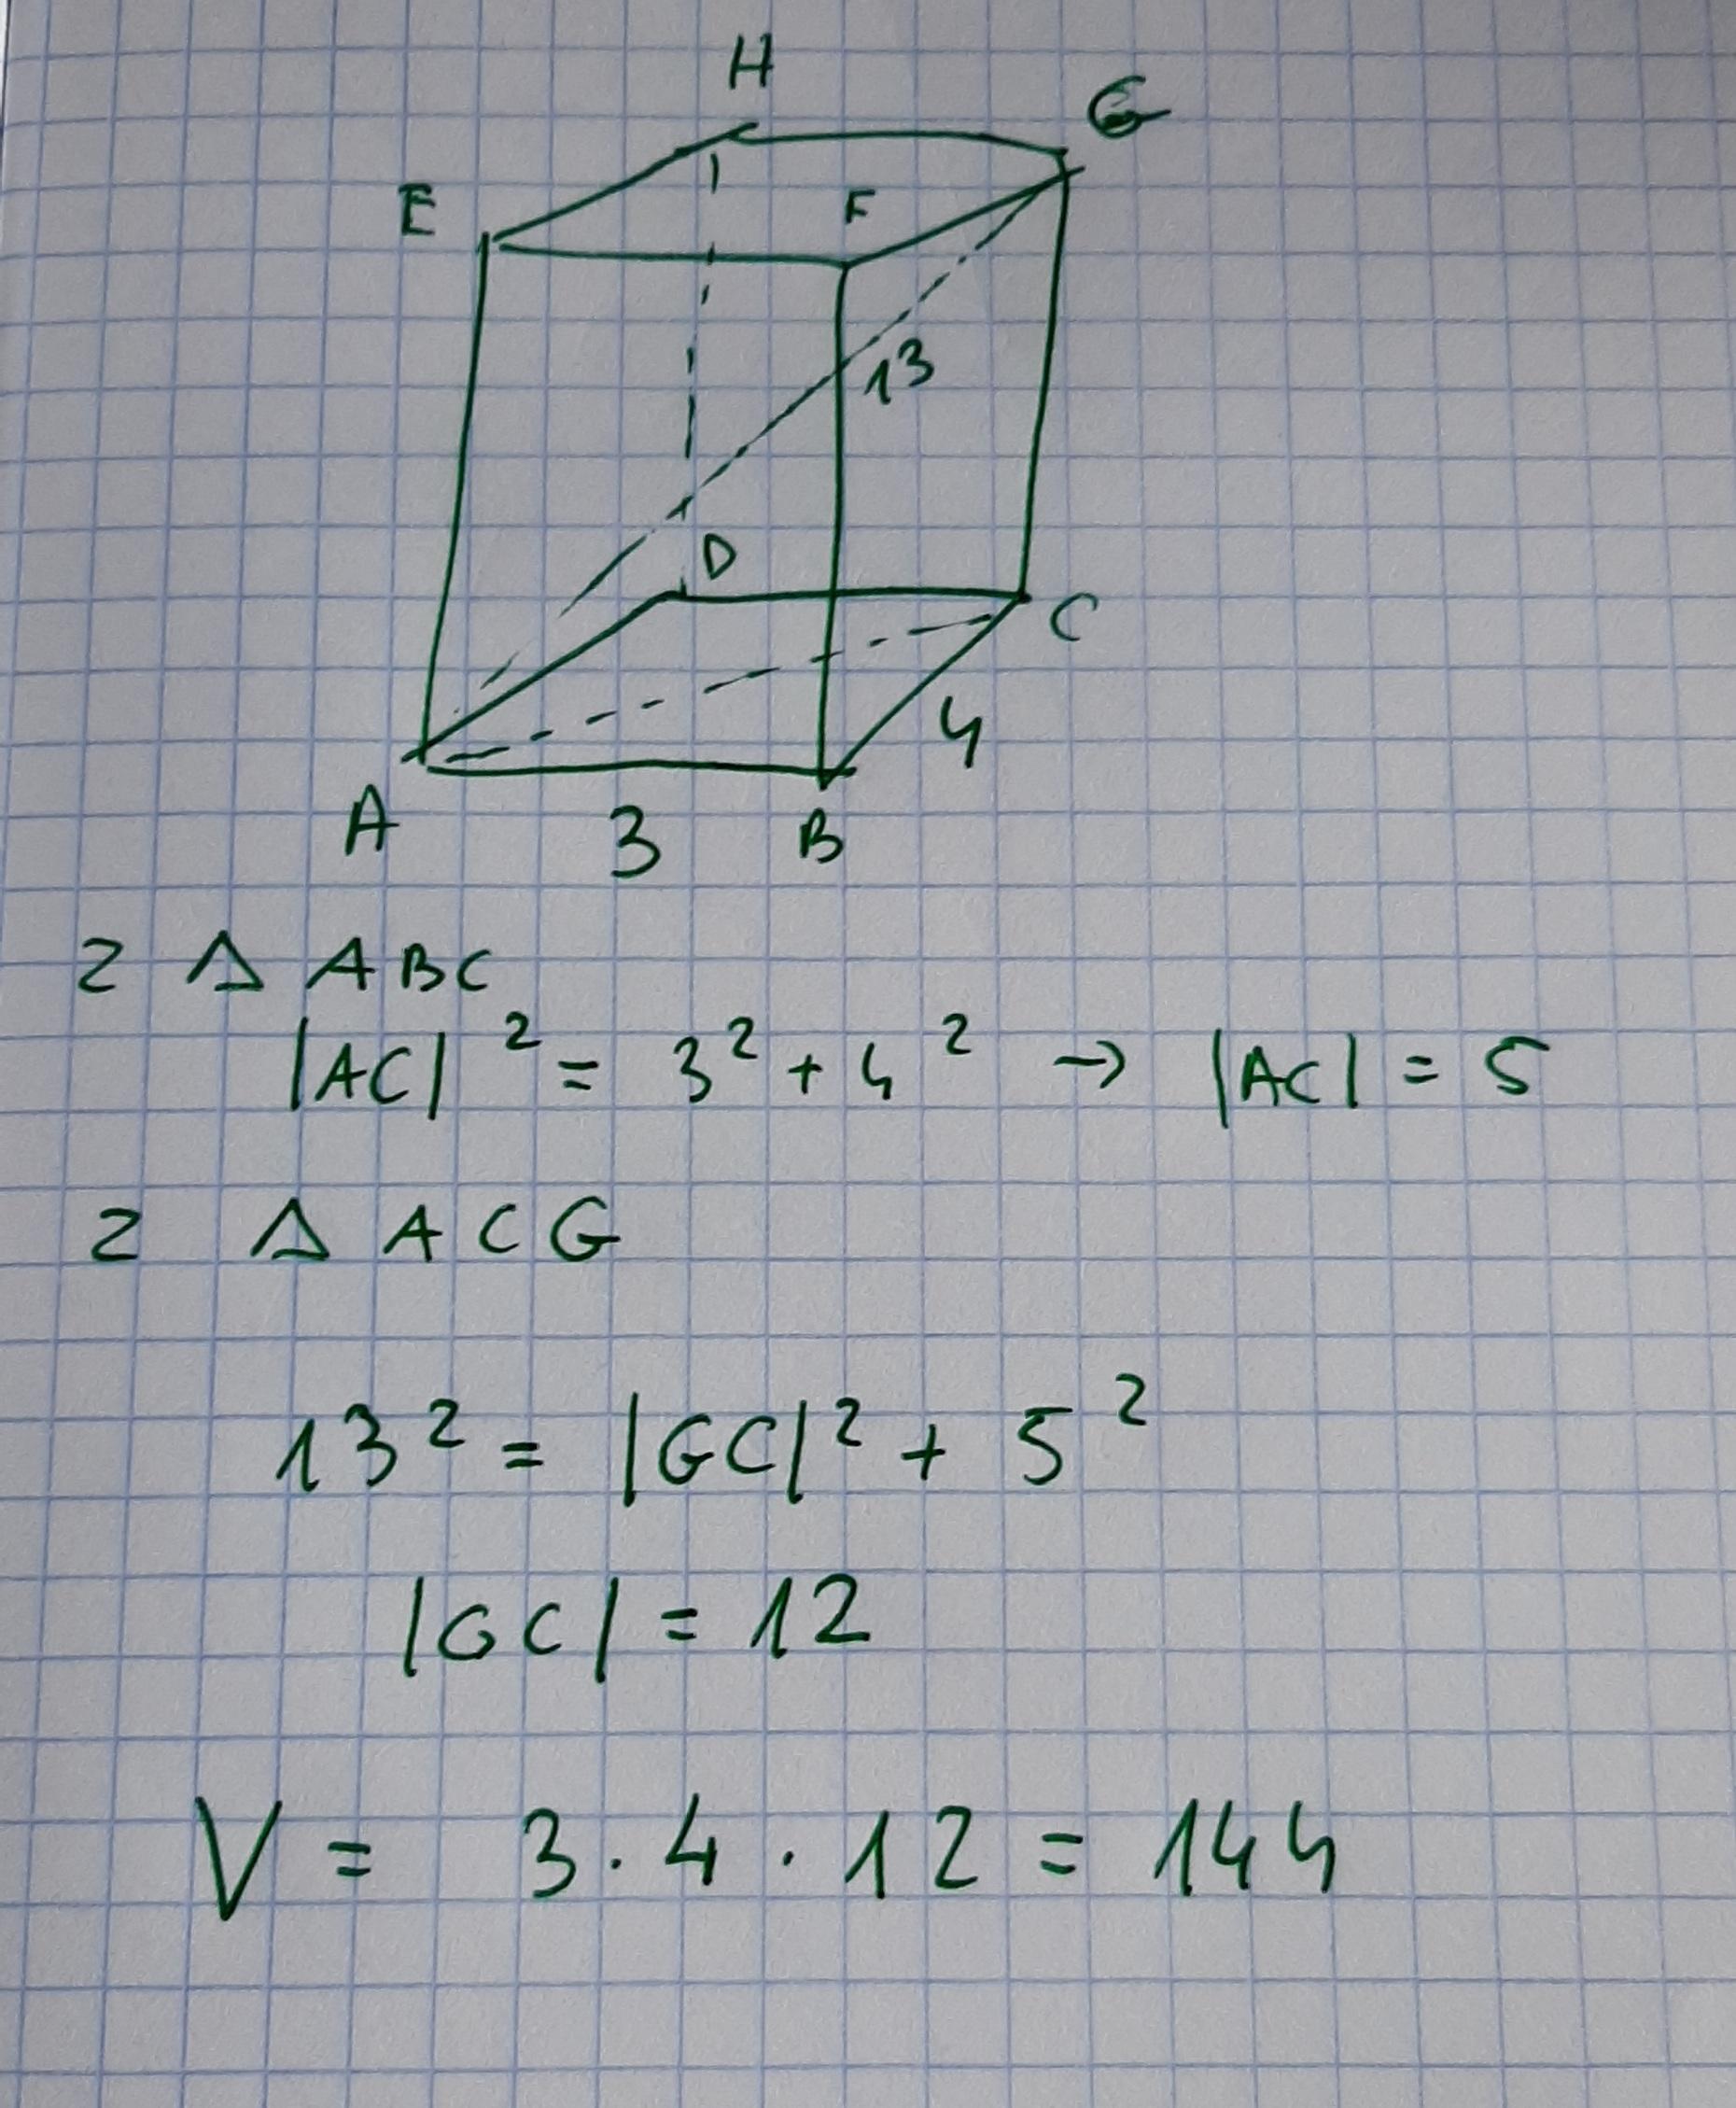 H
G
E
F
13
D
C
4
A
3
B
z Δ ABC
|AC|² = 3² + 4² → |AC| = 5
z Δ ACG
13² = |GC|² + 5²
|GC| = 12
V = 3 · 4 · 12 = 144